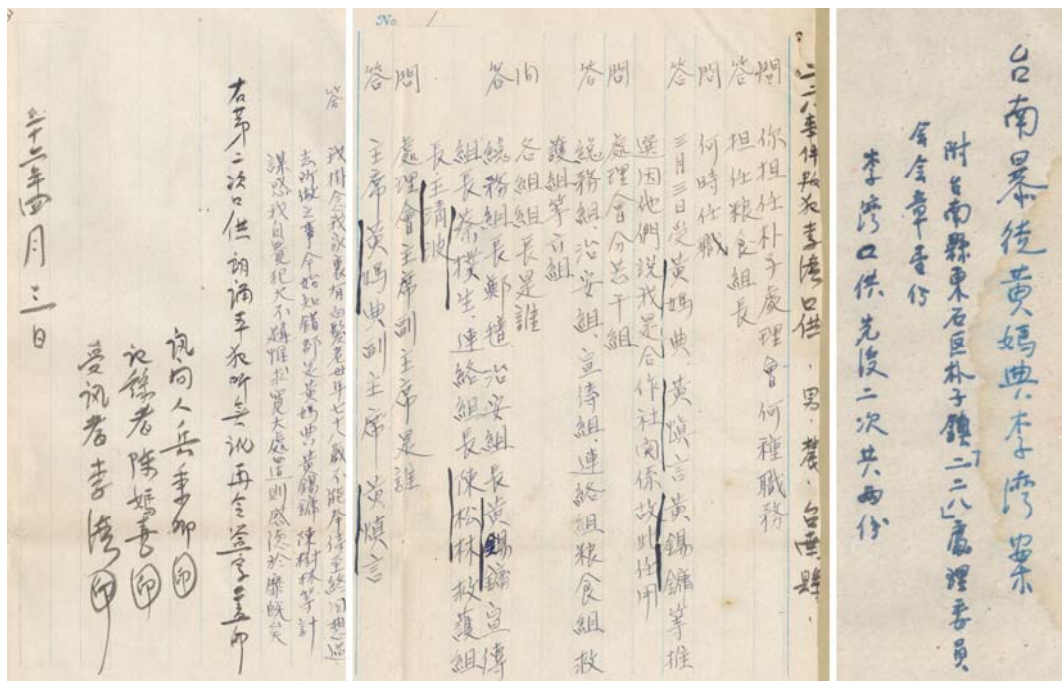 台南暴徒黃媽典李湾案
附台南縣東石區朴子鎮「二二八」處理委員
會會章壹份
李湾口供先後二次共两份
No. 1
二二八事件叛犯李湾口供、男、農、台南縣
問 你担任朴子處理會何種職務
答 担任粮食組長
問 何時任職
答 三月三日受黃媽典、黃慎言黃錫鏞等推
選因他們說我是合作社関係故此任用
問 處理會分若干組
答 總務組、治安組、宣傳組、連絡組粮食組救
護組等六組
問 各組組長是誰
答 總務組長鄭 治安組長黃錫鏞宣傳
組長蔡樸生、連絡組長陳松林救護組
長王清波
問 處理會主席副主席是誰
答 主席黃媽典副主席 黃慎言
答 我掛念我家裏有白髮老母年七十八歲不能奉侍至終回想過
去所做之事今始知錯都是黃媽典、黃錫鏞陳樹林等計
謀恐我自覺犯大不 惟求寬大處置則感 於靡既矣
右第二次口供朗誦本犯听無訛再令簽字盖印
訊問人岳秉卿 印
記錄者陳媽喜 印
受訊者李湾 印
三十六年四月三日